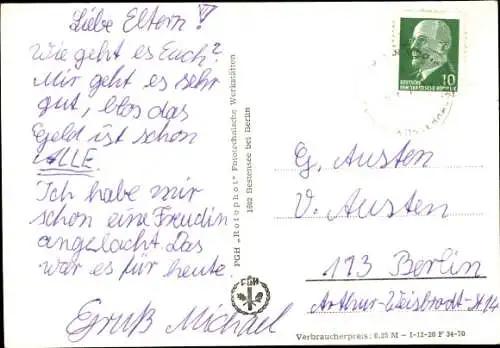 Liebe Eltern!
Wie geht es Euch?
Mir geht es sehr
gut, blos das
Geld ist schon
ALLE.
Ich habe mir
schon eine Freudin
angelacht. Das
war es für heute.
Gruß Michael
PGH „Rotophot" Fototechnische Werkstätten
1602 Bestensee bei Berlin
PGH
10
DEUTSCHE
DEMOKRATISCHE REPUBLIK
G. Austen
V. Austen
113 Berlin
Arthur-Weisbrodt-St. 14
Verbraucherpreis: 0,25 M – I-12-20 F 34-70